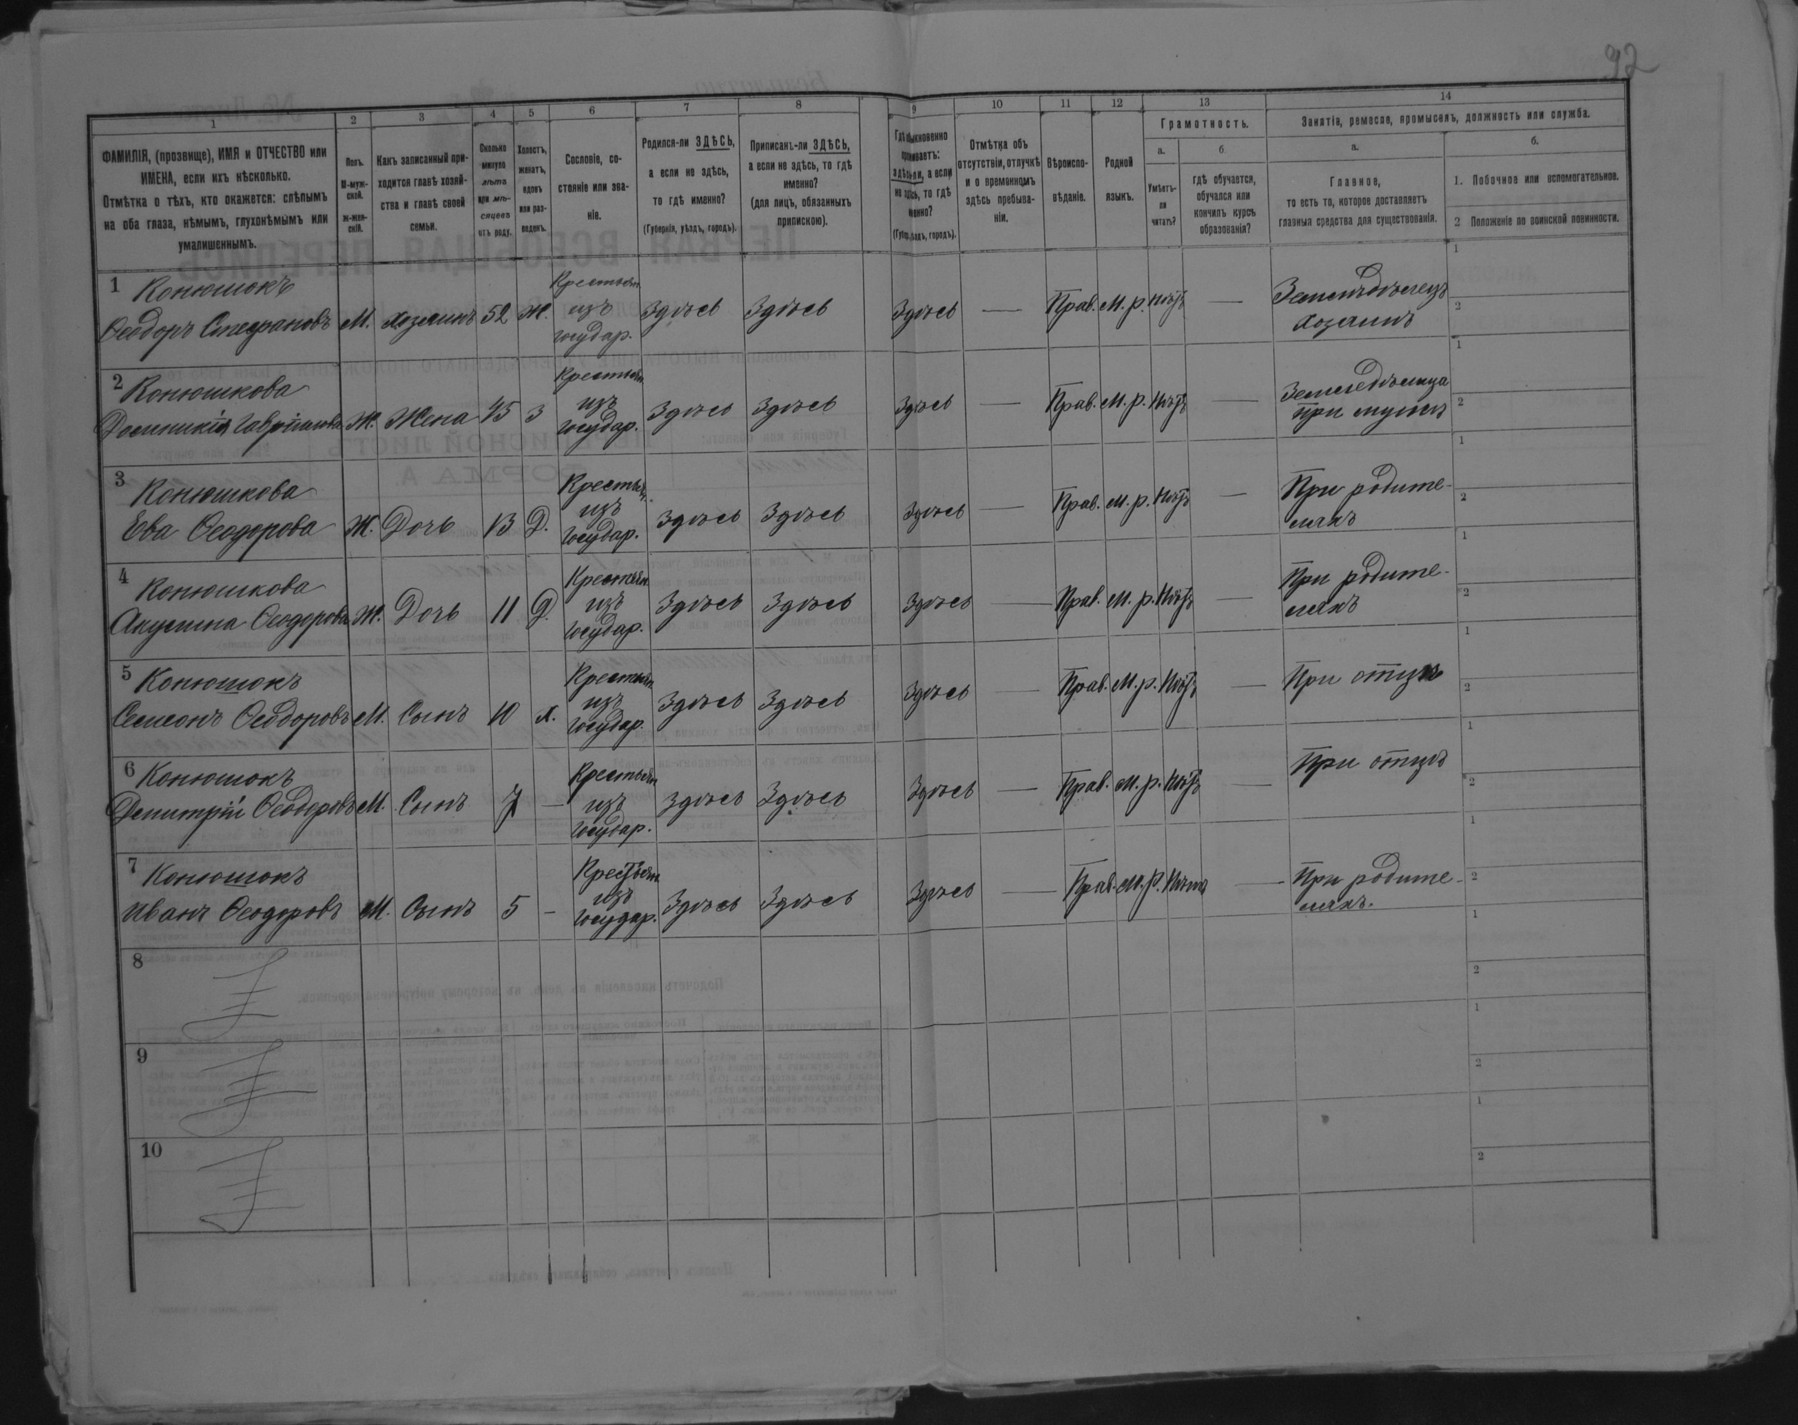 92
1 2 3 4 5 6 7 8 9 10 11 12 13 14
ФАМИЛІЯ, (прозвище), ИМЯ и ОТЧЕСТВО или
ИМЕНА, если ихъ нѣсколько.
Отмѣтка о тѣхъ, кто окажется: слѣпымъ
на оба глаза, нѣмымъ, глухонѣмымъ или
умалишеннымъ.
Полъ.
М-муж-
ской.
Ж-жен-
скій.
Какъ записанный при-
ходится главѣ хозяй-
ства и главѣ своей
семьи.
Сколько
минуло
лѣтъ
или мѣ-
сяцевъ
отъ роду.
Холостъ,
женатъ,
вдовъ
или раз-
веденъ.
Сословіе, со-
стояніе или зва-
ніе.
Родился-ли ЗДѢСЬ,
а если не здѣсь,
то гдѣ именно?
(Губернія, уѣздъ, городъ).
Приписанъ-ли ЗДѢСЬ,
а если не здѣсь, то гдѣ
именно?
(для лицъ, обязанныхъ
припискою).
Гдѣ обыкновенно
проживаетъ:
здѣсь-ли, а если
не здѣсь, то гдѣ
именно?
(Губ., уѣздъ, городъ).
Отмѣтка объ
отсутствіи, отлучкѣ
и о временномъ
здѣсь пребыва-
ніи.
Вѣроиспо-
вѣданіе.
Родной
языкъ.
Грамотность.
а.
Умѣетъ-
ли
читать?
б
гдѣ обучается,
обучался или
кончилъ курсъ
образованія?
Занятія, ремесло, промыселъ, должность или служба.
а.
Главное,
то есть то, которое доставляетъ
главныя средства для существованія.
б.
1. Побочное или вспомогательное.
2 Положеніе по воинской повинности.
1 Конюшокъ Крестьян. 1
Ѳеодоръ Стефановъ М. Хозяинъ 52 Ж. изъ Здѣсь Здѣсь Здѣсь — Прав. М. р. Нѣтъ — Земледѣлецъ 2
государ. хозяинъ
2 Конюшкова Крестьян. 1
Ж. Жена 45 З изъ Здѣсь Здѣсь Здѣсь — Прав. М. р. Нѣтъ — Земледѣлица 2
государ. при мужѣ
3 Конюшкова Крестьян. 1
Ева Ѳеодорова Ж. Дочь 13 Д. изъ Здѣсь Здѣсь Здѣсь — Прав. М. р. Нѣтъ — При родите- 2
государ. ляхъ
4 Конюшкова Крестьян. 1
Акулина Ѳеодорова Ж. Дочь 11 Д. изъ Здѣсь Здѣсь Здѣсь — Прав. М. р. Нѣтъ — При родите- 2
государ. ляхъ
5 Конюшокъ Крестьян. 1
Семеонъ Ѳеодоровъ М. Сынъ 10 Х. изъ Здѣсь Здѣсь Здѣсь Прав. М. р. Нѣтъ — При отцѣ 2
государ.
6 Конюшокъ Крестьян. 1
Димитрій Ѳеодоровъ М. Сынъ 7 — изъ Здѣсь Здѣсь Здѣсь — Прав. М. р. Нѣтъ — При отцѣ 2
государ.
7 Конюшокъ Крестьян. 1
Иванъ Ѳеодоровъ М. Сынъ 5 — изъ Здѣсь Здѣсь Здѣсь — Прав. М. р. Нѣтъ — При родите- 2
государ. ляхъ.
8 1
2
9 1
2
10 1
2